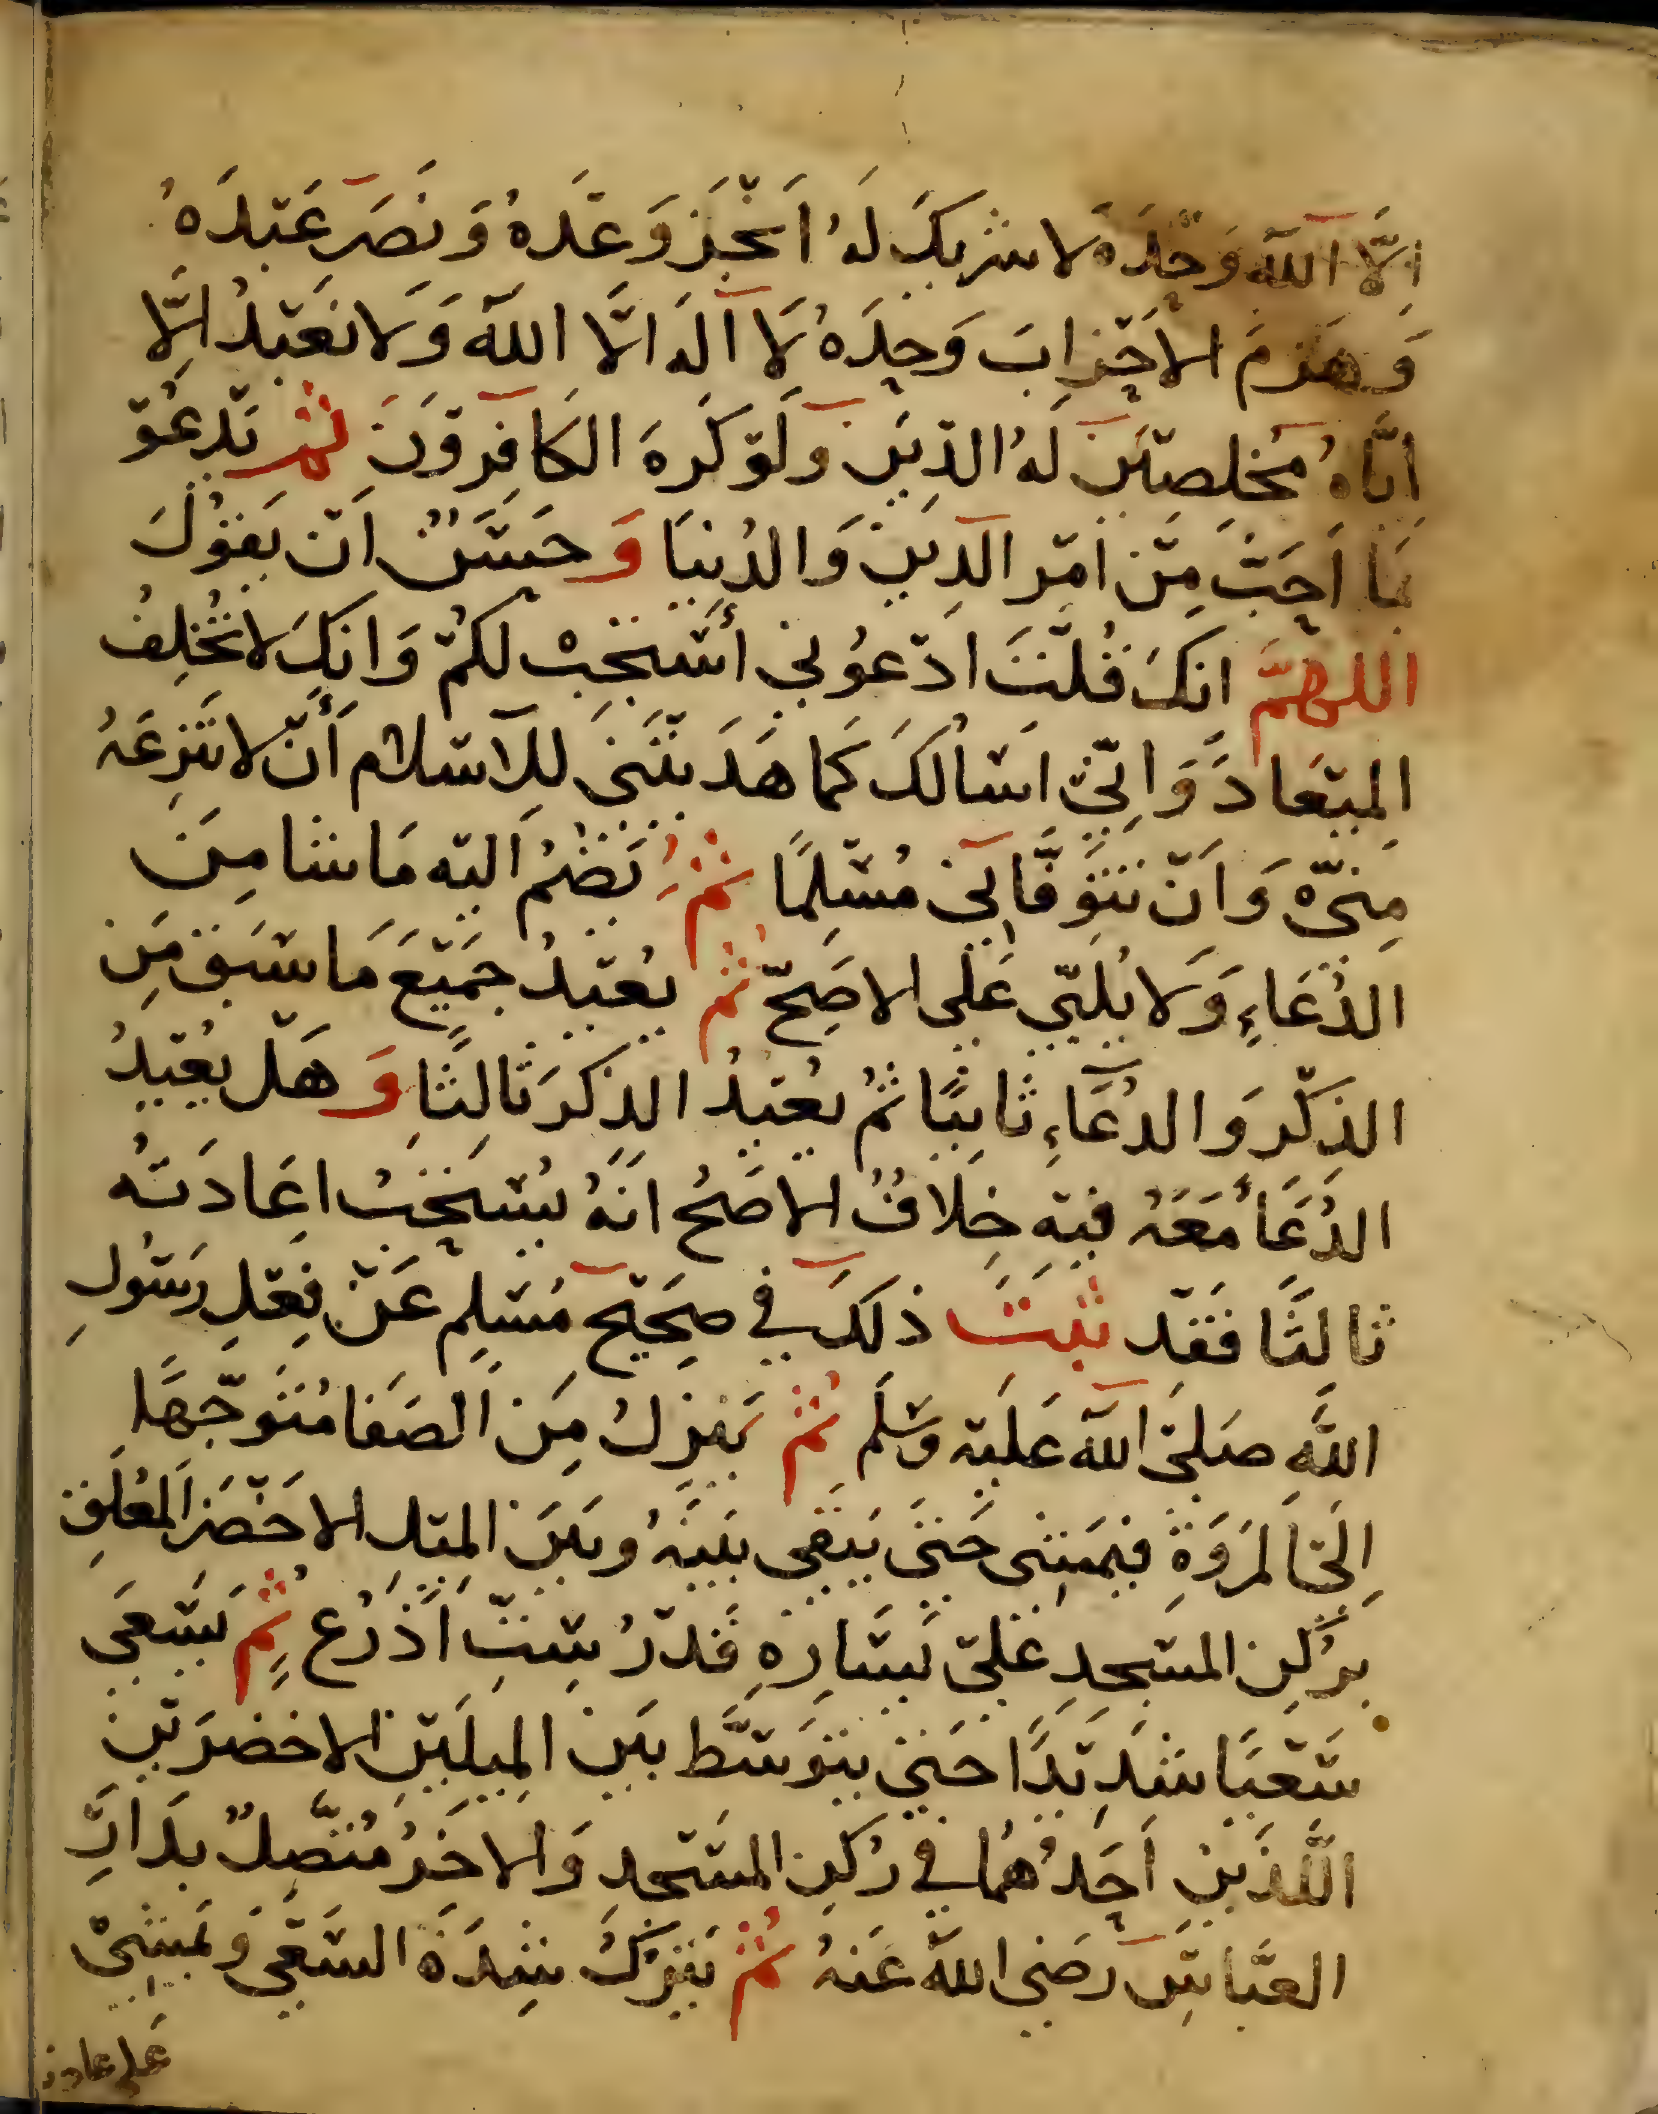 اِلَّا اللّٰه وَحْدَهُ لا شريكَ لَهُ اَنْجَزَ وَعْدَهُ وَنَصَرَ عَبْدَهُ
وَهَزَمَ الاَحْزابَ وَحدَهُ لَا اله الَّا اللّٰه وَلا نَعْبُدُ الَّا
ايَّاهُ مُخلِصِيْنَ لَهُ الدِّيْنَ وَلَوْ كَرِهَ الكَافِرُوْنَ ثم يَدْعُوْ
بمَا اَحَبَّ مِنْ اَمْرِ الدِيْنِ وَالدُنيَا وَحسَنٌ اَنْ يَقُوْلَ
اللهُمَّ انكَ قُلْتَ ادْعُوني أسْتَجِبْ لَكُمْ وَانكَ لا تُخْلِفُ
المِيْعَادَ وَاِنِّيْ اسْالُكَ كَمَا هَدَيْتَنِي لِلْاسْلام أَنْ لا تَنْزِعَهُ
مِنِّيْ وَاَنْ تَتَوَفَّانِي مُسْلِمًا ثمُ يَضُمُ اليْه مَا شا مِنَ
الدُعَاءِ وَلا يُلَبِّي عَلى الاصَحّ ثُم يُعيْدُ جَمِيْعَ مَا سَبَقَ مِنَ
الذِكْر وَالدُعَاءِ ثانِيًا ثمُ يُعيْدُ الذِكرَ ثالِثًا وَهَلْ يُعِيْدُ
الدُعَأ مَعَهُ فيْهِ خِلَافٌ الاصَحُ انَهُ يُسْتَحَبُ اعَادَتهُ
ثالثًا فَقَدْ ثبَتَ ذلكَ في صَحِيْح مُسْلِم عَنْ فِعْلِ رَسُوْلِ
اللَّهِ صَلىَ اللّٰه عَلَيْه وَسَلَم ثُم يَنزِلُ مِنَ الصَفا مُتَوَجّهًا
اِلَى المَرْوَةِ فيمَشِي حَتىَ يَبْقى بَيْنَهُ وبَيْنَ المِيْلِ الاخْضَر المُعَلَقِ
بِرُكنِ المسْجدِ عَلىْ يَسَارِهِ قَدْرُ سِتِّ اَذْرُع ثِمُ يَسْعَى
سَعْيًا شَدِيْدًا حَتى يتوَسَّط بيَن المِيلَيْنِ الاخضَرَيْنِ
اللَّذَيْنِ اَحَدُهُما في رُكنِ المسْجدِ وَالاخَرُ مُتَّصِلٌ بدَارِ
العَبَّاسِ رَضي اللّٰه عَنهُ ثُمْ يَتْرُكُ شِدَةَ السَعْيَ وَيَمْشِيْ
عَلى عادَته